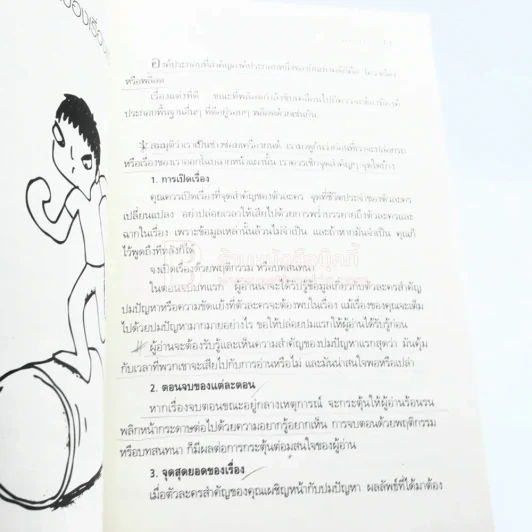 องค์ประกอบที่สำคัญองค์ประกอบหนึ่งของ
หรือพล็อต
เรื่องแต่งที่ดี ขณะที่พล็อตกำลังขับเคลื่อนไป
ประกอบพื้นฐานอื่นๆ ที่ดีอยู่รอบๆ พล็อตด้วยเช่นกัน
สมมุติว่าเราเป็นช่างซ่อมเครื่องยนต์ เรามาดูกันว่าก่อนที่เราจะปล่อยรถ
หรือเรื่องของเราออกไปจะ เราควรเช็กจุดสำคัญๆ จุดใดบ้าง
1. การเปิดเรื่อง
คุณควรเปิดเรื่องที่จุดสำคัญของตัวละคร จุดที่ชีวิตประจำของตัวละคร
เปลี่ยนแปลง อย่าปล่อยเวลาให้เสียไปด้วยการพร่ำบรรยายถึงตัวละครและ
ฉากในเรื่อง เพราะข้อมูลเหล่านั้นล้วนไม่จำเป็น และถ้าหากมันจำเป็น คุณก็
ไว้พูดถึงทีหลังก็ได้
จงเปิดเรื่องด้วยพฤติกรรม หรือบทสนทนา
ในตอนจบบทแรก ผู้อ่านน่าจะได้รับรู้ข้อมูลเกี่ยวกับตัวละครสำคัญ
ปมปัญหาหรือความขัดแย้งที่ตัวละครจะต้องพบในเรื่อง แม้เรื่องของคุณจะเต็ม
ไปด้วยปมปัญหามากมายอย่างไร ขอให้ปล่อยปมแรกให้ผู้อ่านได้รับรู้ก่อน
ผู้อ่านจะต้องรับรู้และเห็นความสำคัญของปมปัญหาแรกสุดว่า มันคุ้ม
กับเวลาที่พวกเขาจะเสียไปกับการอ่านหรือไม่ และมันน่าสนใจพอหรือเปล่า
2. ตอนจบของแต่ละตอน
หากเรื่องจบตอนขณะอยู่กลางเหตุการณ์ จะกระตุ้นให้ผู้อ่านร้อนรน
พลิกหน้ากระดาษต่อไปด้วยความอยากรู้อยากเห็น การจบตอนด้วยพฤติกรรม
หรือบทสนทนา ก็มีผลต่อการกระตุ้นต่อมสนใจของผู้อ่าน
3. จุดสุดยอดของเรื่อง
เมื่อตัวละครสำคัญของคุณเผชิญหน้ากับปมปัญหา ผลลัพธ์ที่ได้มาต้อง